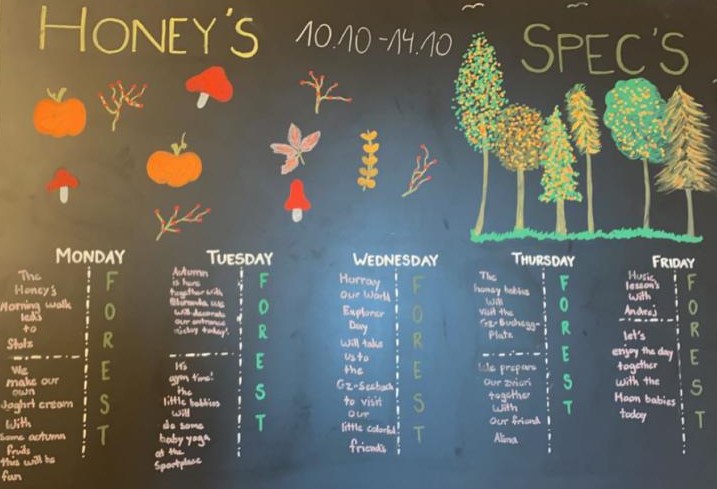 HONEY'S
10.10-14.10
SPEC'S
MONDAY
The
Honey's
Morning walk
leads
to
Stolz
We
make our
own
Joghrt cream
With
Some autumn
fruits
this will be
fun
FOREST
TUESDAY
Autumn
is here
together with
we
will decorate
our entrance
today!
It's
gym time!
the
little babbies
will
do some
baby yoga
at the
Sportplace
FOREST
WEDNESDAY
Hurray
our World
Explorer
Day
Will take
us to
the
Gz-Seebach
to visit
our
little colorful
friend's
FOREST
THURSDAY
The
honey babies
Will
visit the
Gz-Buchegg-
Platz
We prepare
our
together
With
our friend
Alina
FOREST
FRIDAY
Music
lesson's
with
Andrej
let's
enjoy the day
together
with the
Moon babies
today
FOREST